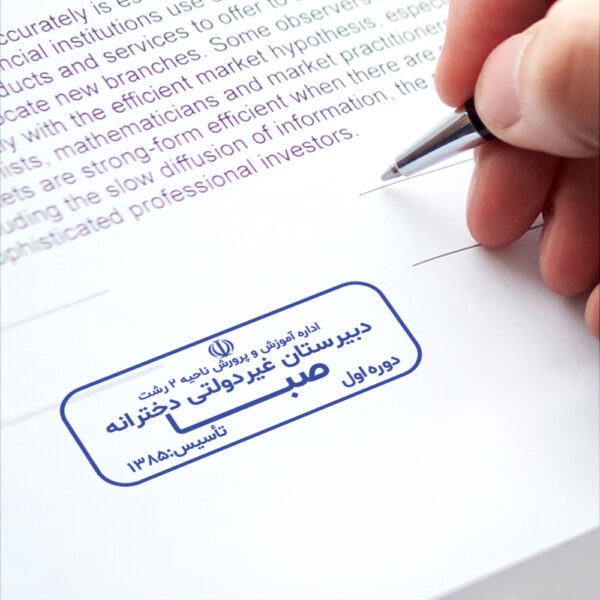 ccurately is es
ncial institutions use
ducts and services to offer to
ocate new branches. Some observers
ly with the efficient market hypothesis, especi
ists, mathematicians and market practitioners
ets are strong-form efficient when there are
uding the slow diffusion of information, the
ophisticated professional investors.
اداره آموزش و پرورش ناحیه ۲ رشت
دبیرستان غیردولتی دخترانه
صبا
دوره اول
تأسیس:۱۳۸۵